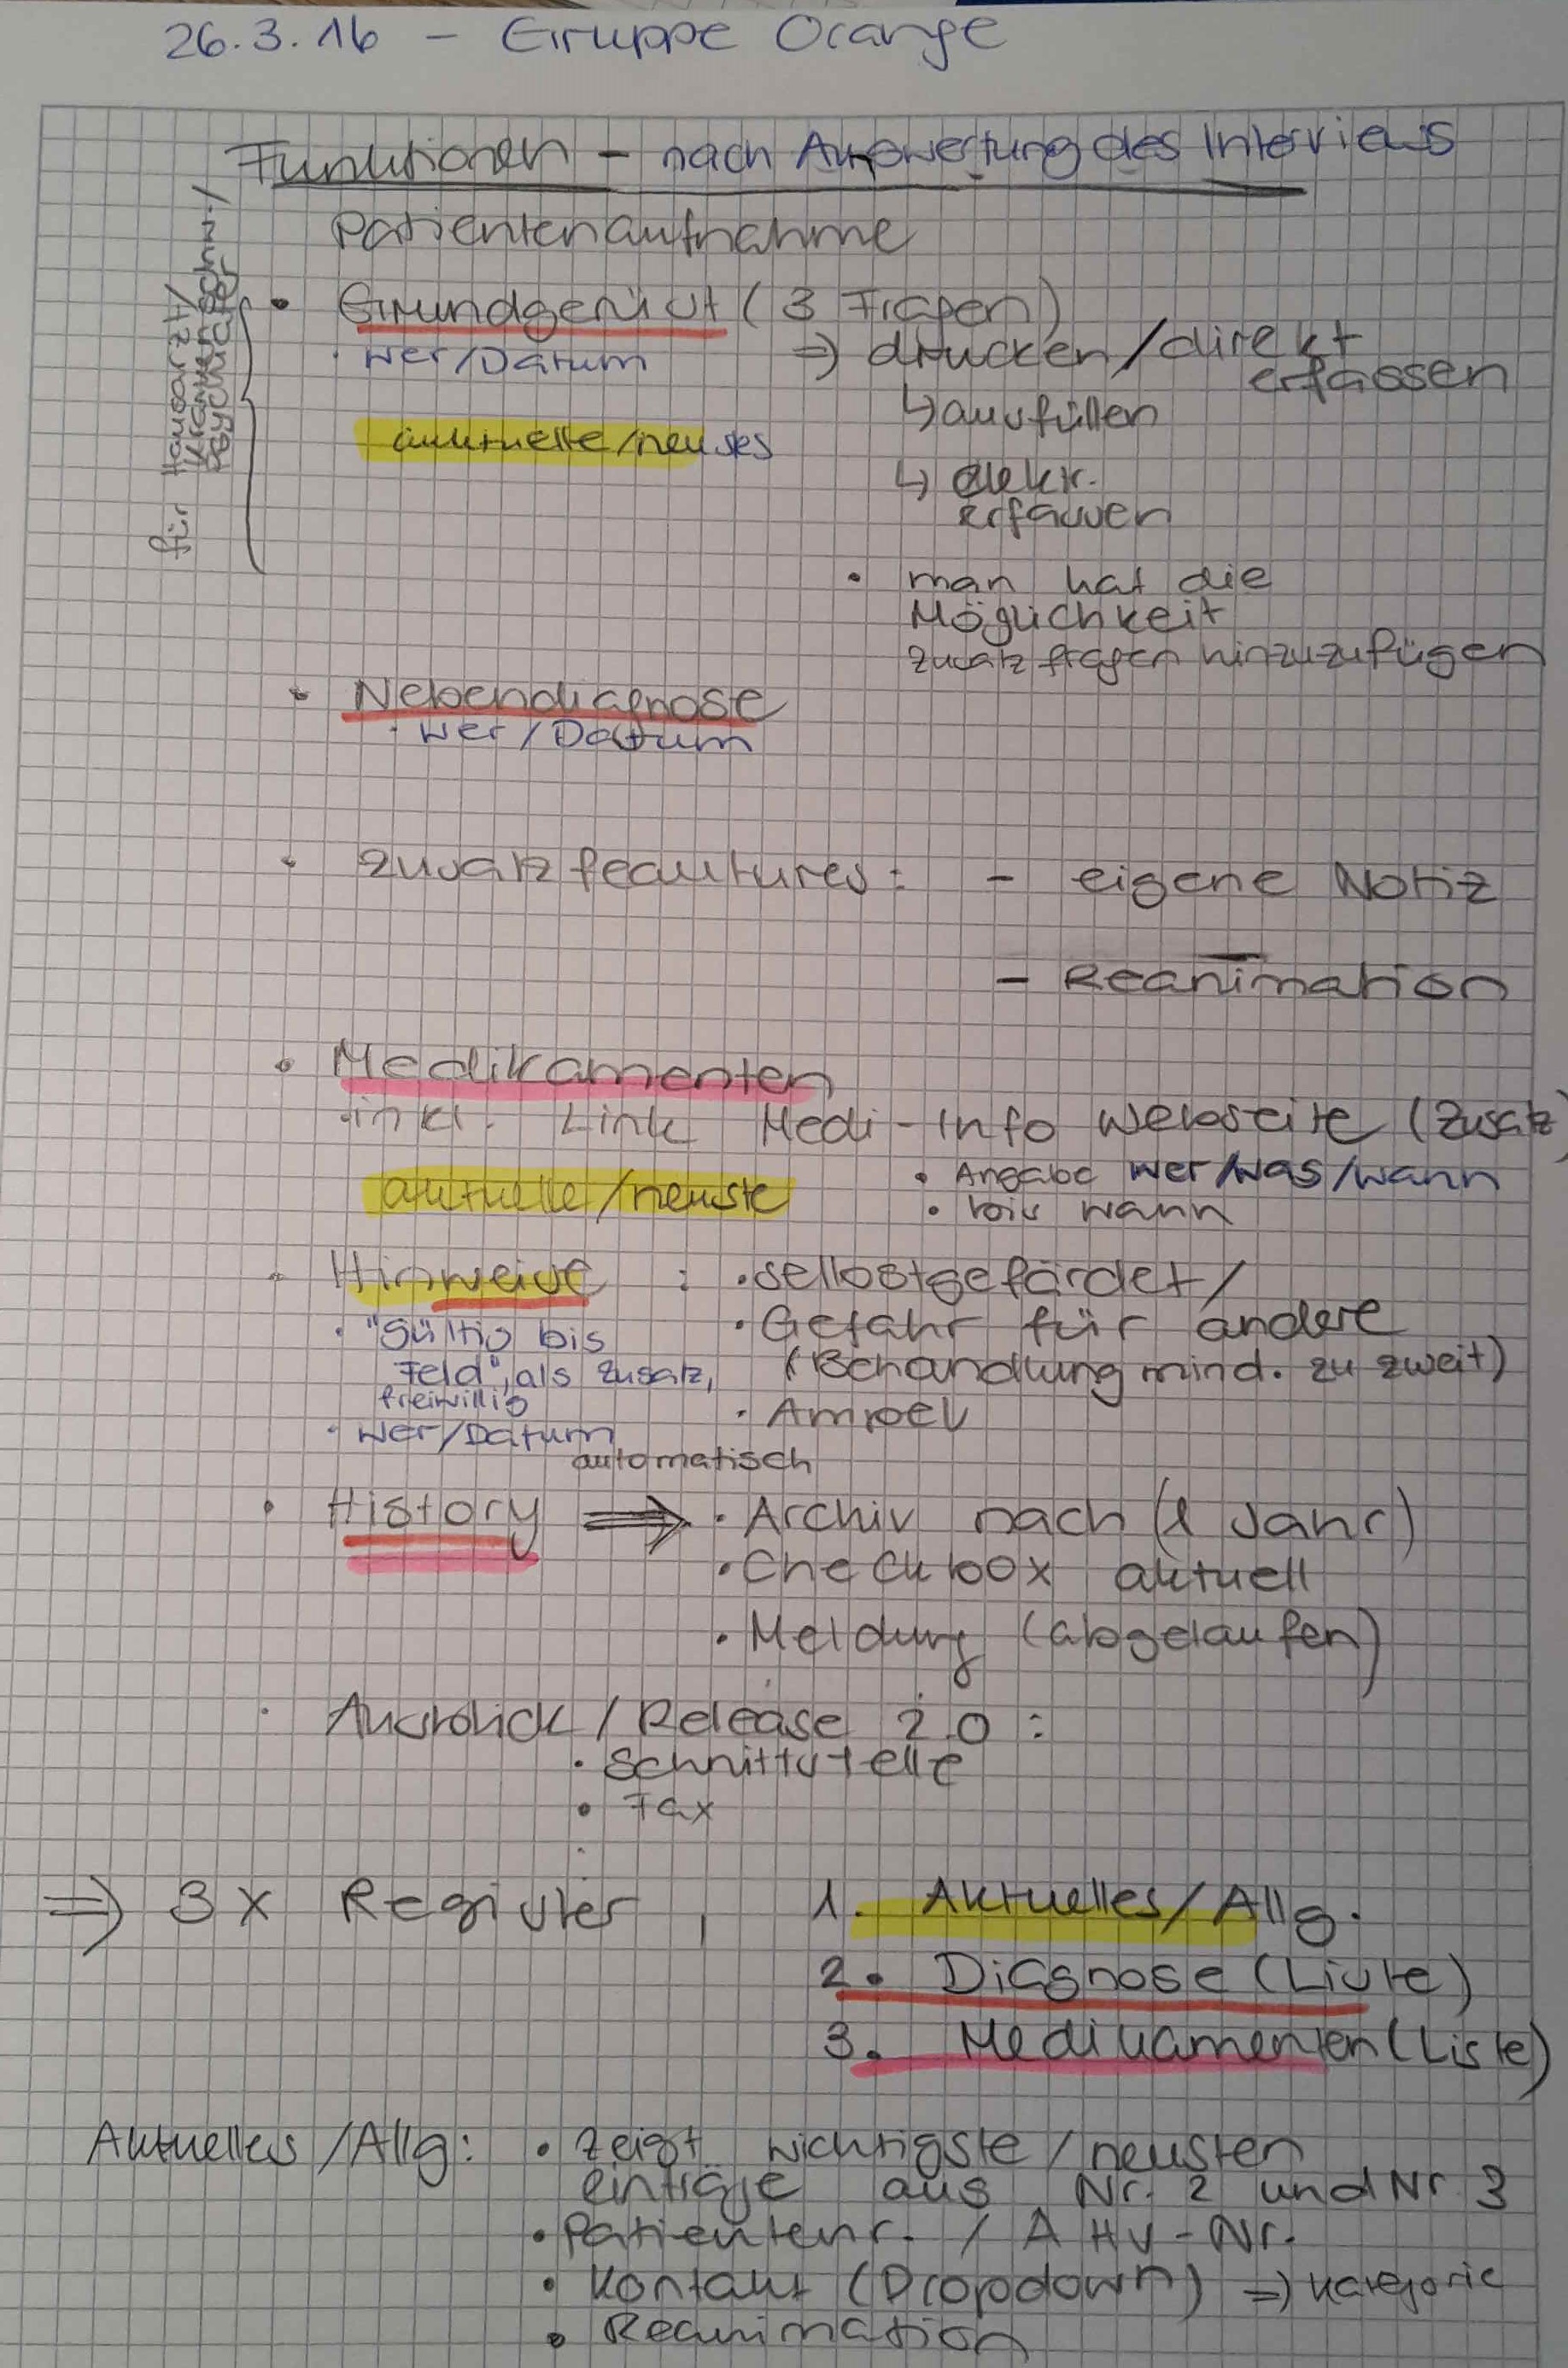 26.3.16 - Gruppe Orange
Funktionen - nach Auswertung des Interviews
Patientenaufnahme
für Hausarzt/
Krankenschw./
Psychiater
• Grundgerüst (3 Fragen)
· wer/Datum => drucken/direkt
erfassen
↳ ausfüllen
aktuelle/neustes
↳ elektr.
erfassen
• man hat die
Möglichkeit
Zusatzfragen hinzuzufügen
• Nebendiagnose
· wer/Datum
• Zusatzfeautures: - eigene Notiz
- Reanimation
• Medikamenten
· inkl. Link Medi-Info Webseite (Zusatz)
• Angabe wer/was/wann
aktuelle/neuste
• bis wann
• Hinweise : • selbstgefärdet/
• "Gültig bis • Gefahr für andere
Feld", als Zusatz, (Behandlung mind. zu zweit)
freiwillig
• Ampel
• wer/Datum
automatisch
• History => • Archiv nach (1 Jahr)
• Checkbox aktuell
• Meldung (abgelaufen)
• Ausblick/Release 2.0 :
• Schnittstelle
• Fax
=> 3x Register, 1. Aktuelles/Allg.
2. Diagnose (Liste)
3. Medikamenten (Liste)
Aktuelles/Allg: • zeigt wichtigste/neusten
einträge aus Nr. 2 und Nr 3
• Patientenr. / AHV-Nr.
• Kontakt (Dropdown) => Kategorie
• Reanimation